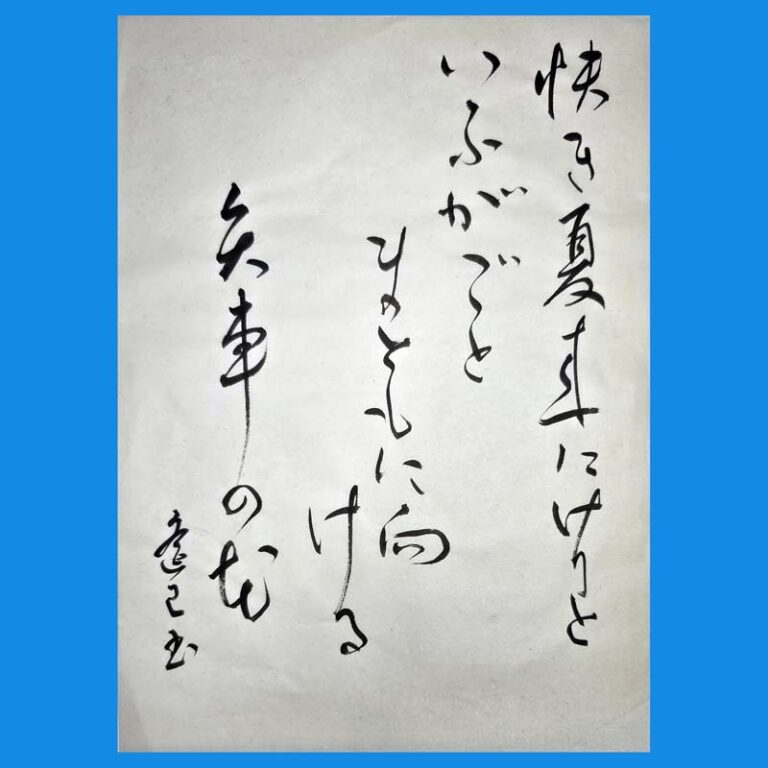 快き夏来にけりと
いふがごと
まともに向
ける
矢車の花